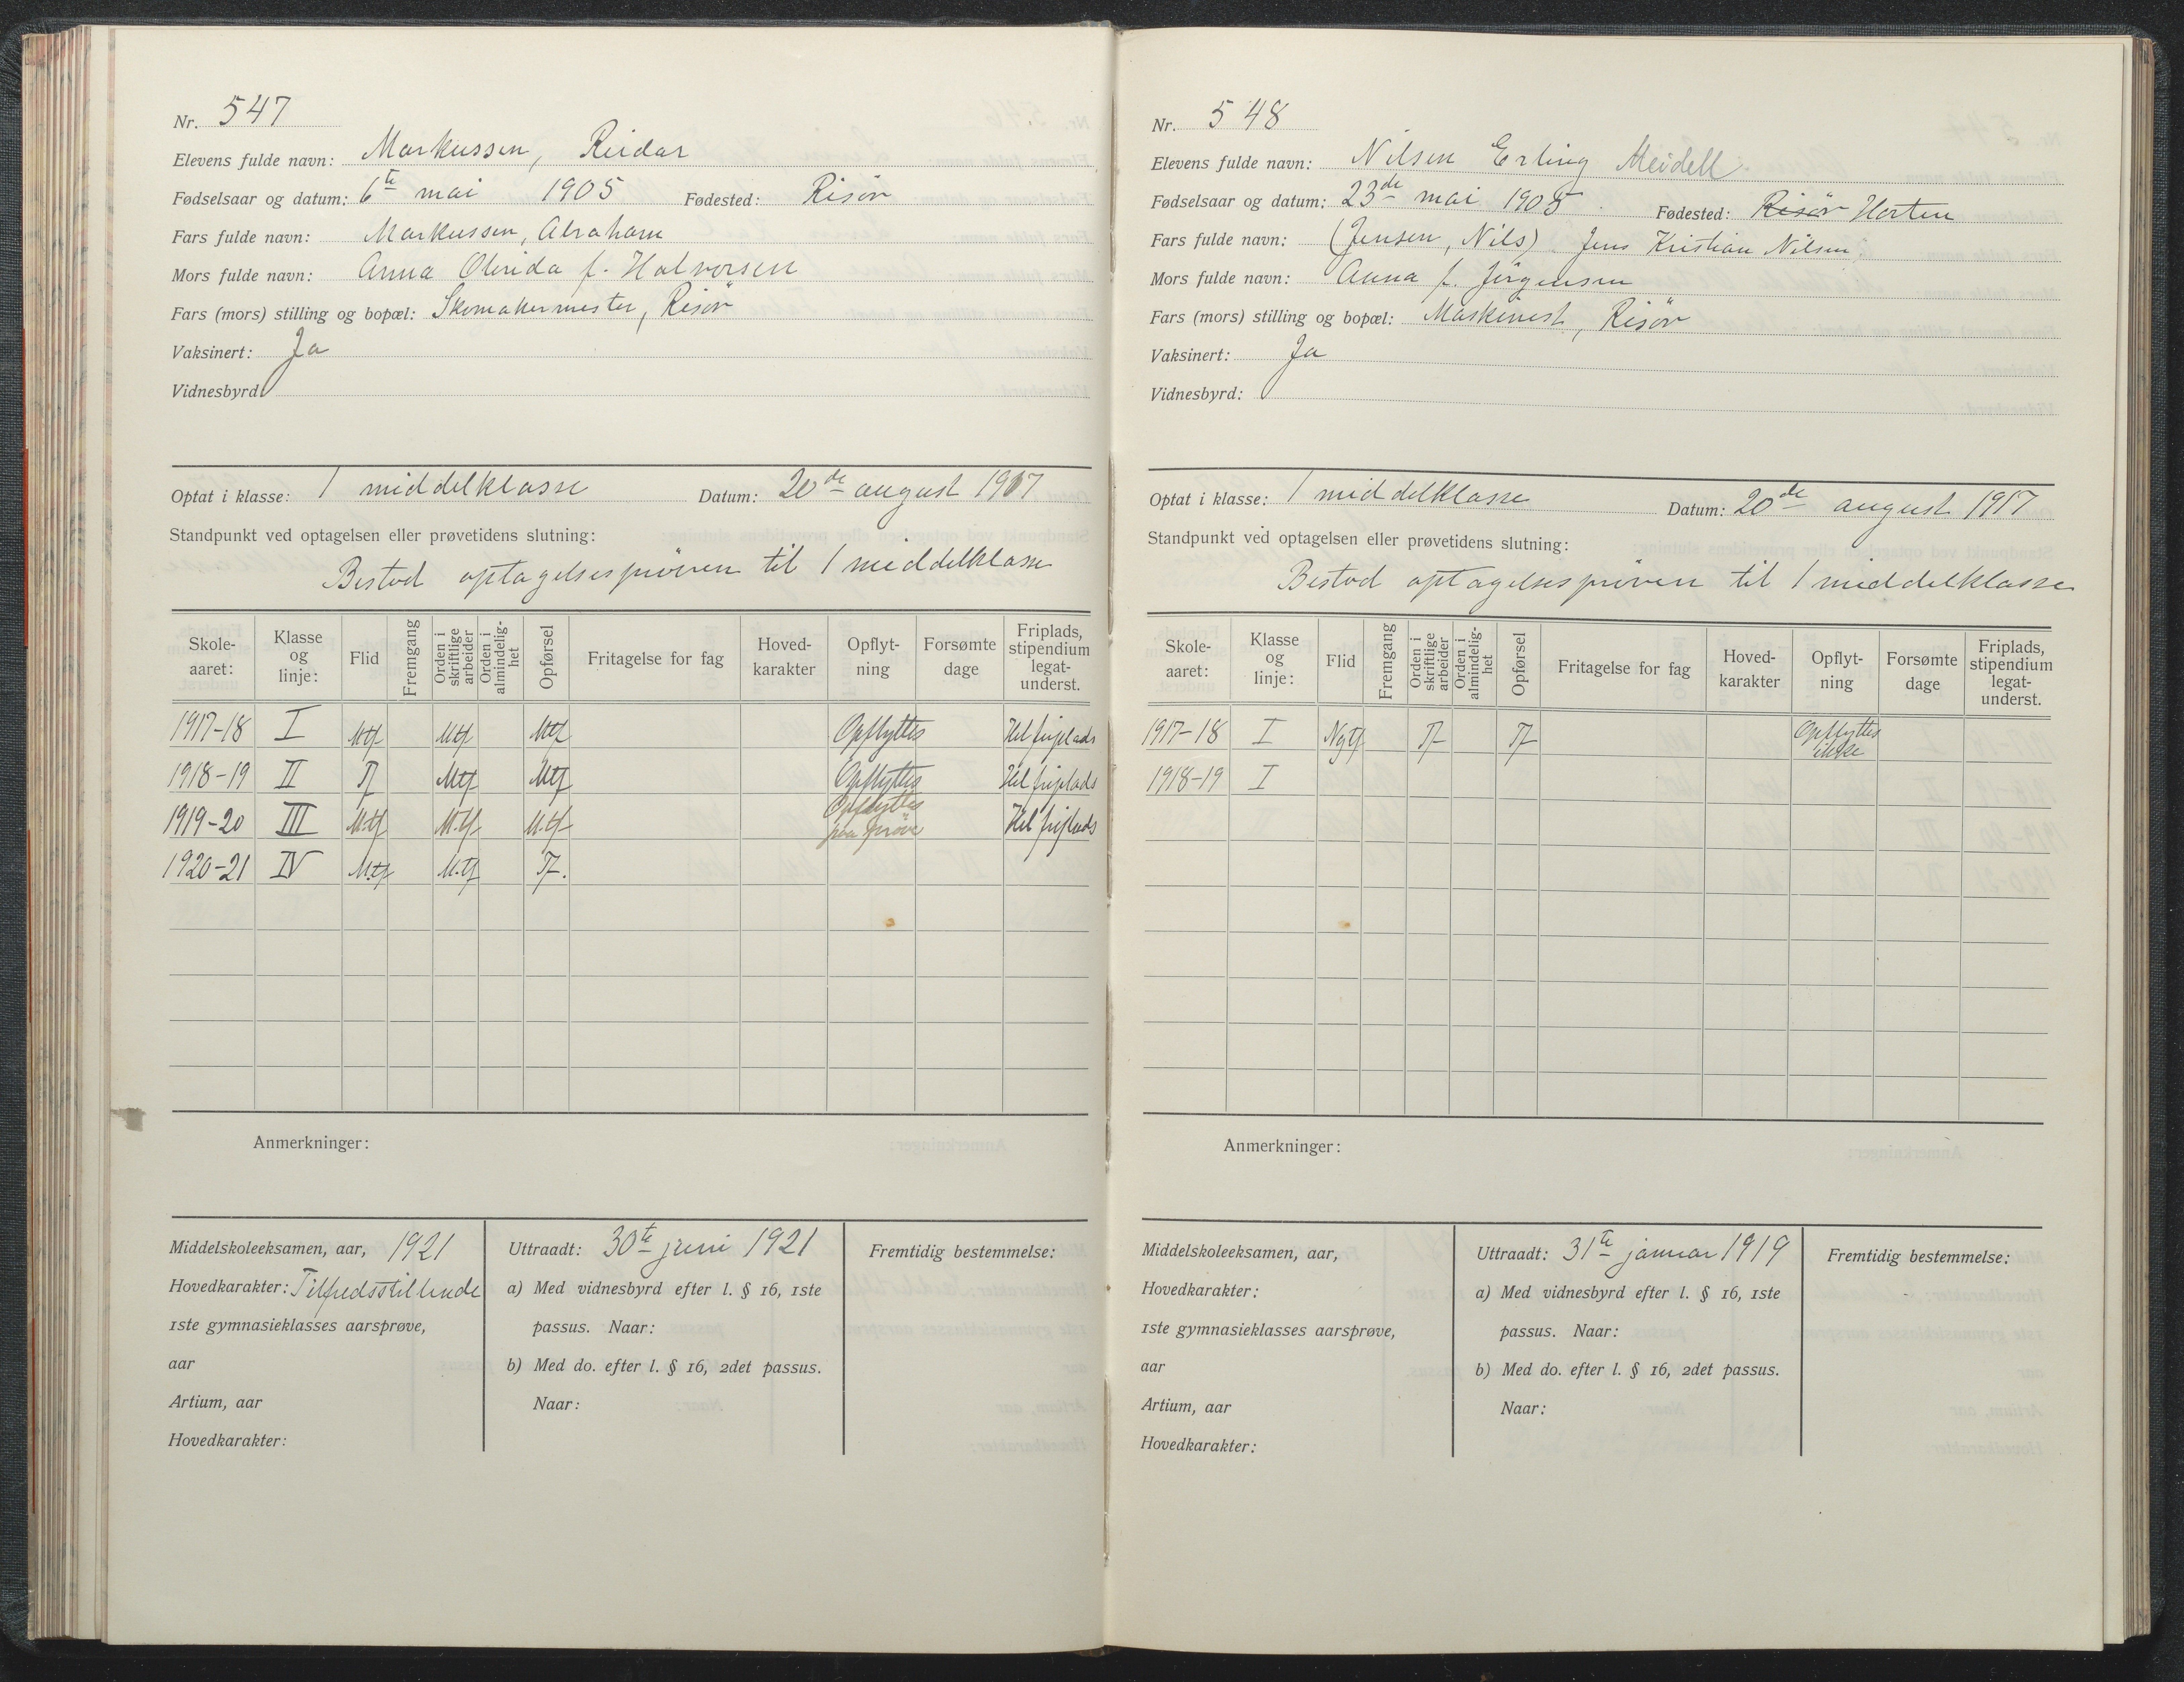 Nr. 547
Elevens fulde navn: Markussen, Reidar
Fødselsaar og datum: 6te mai 1905 Fødested: Risör
Fars fulde navn: Markussen, Abraham
Mors fulde navn: Anna f. Halvorsen
Fars (mors) stilling og bopæl: Skomakermester, Risör
Vaksinert: Ja
Vidnesbyrd:
Optat i klasse: 1 middelklasse Datum: 20de august 1917
Standpunkt ved optagelsen eller prøvetidens slutning:
Bestod optagelsespröven til 1 middelklasse
Skole-aaret: Klasse og linje: Flid Fremgang Orden i skriftlige arbeider Orden i almindelig-het Opførsel Fritagelse for fag Hoved-karakter Opflyt-ning Forsømte dage Friplads, stipendium legat-underst.
1917-18 I Mtf Mtf Mtf Opflyttes Hel friplads
1918-19 II Tf Mtf Mtf Opflyttes Hel friplads
1919-20 III M.tf M.tf M.tf Opflyttes paa pröve Hel friplads
1920-21 IV M.tf M.tf Tf.
Anmerkninger:
Middelskoleeksamen, aar, 1921
Hovedkarakter: Tilfredsstillende
1ste gymnasieklasses aarsprøve,
aar
Artium, aar
Hovedkarakter:
Uttraadt: 30te juni 1921
a) Med vidnesbyrd efter l. § 16, 1ste
passus. Naar:
b) Med do. efter l. § 16, 2det passus.
Naar:
Fremtidig bestemmelse:
Nr. 548
Elevens fulde navn: Nilsen Erling Meidell
Fødselsaar og datum: 23de mai 1905 Fødested: Risör Horten
Fars fulde navn: (Jensen, Nils) Jens Kristian Nilsen
Mors fulde navn: Anna f. Jörgensen
Fars (mors) stilling og bopæl: Maskinist, Risör
Vaksinert: Ja
Vidnesbyrd:
Optat i klasse: 1 middelklasse Datum: 20de august 1917
Standpunkt ved optagelsen eller prøvetidens slutning:
Bestod optagelsespröven til 1 middelklasse
Skole-aaret: Klasse og linje: Flid Fremgang Orden i skriftlige arbeider Orden i almindelig-het Opførsel Fritagelse for fag Hoved-karakter Opflyt-ning Forsømte dage Friplads, stipendium legat-underst.
1917-18 I Ngtf Tf Tf Opflyttes ikke
1918-19 I
Anmerkninger:
Middelskoleeksamen, aar,
Hovedkarakter:
1ste gymnasieklasses aarsprøve,
aar
Artium, aar
Hovedkarakter:
Uttraadt: 31te januar 1919
a) Med vidnesbyrd efter l. § 16, 1ste
passus. Naar:
b) Med do. efter l. § 16, 2det passus.
Naar:
Fremtidig bestemmelse: